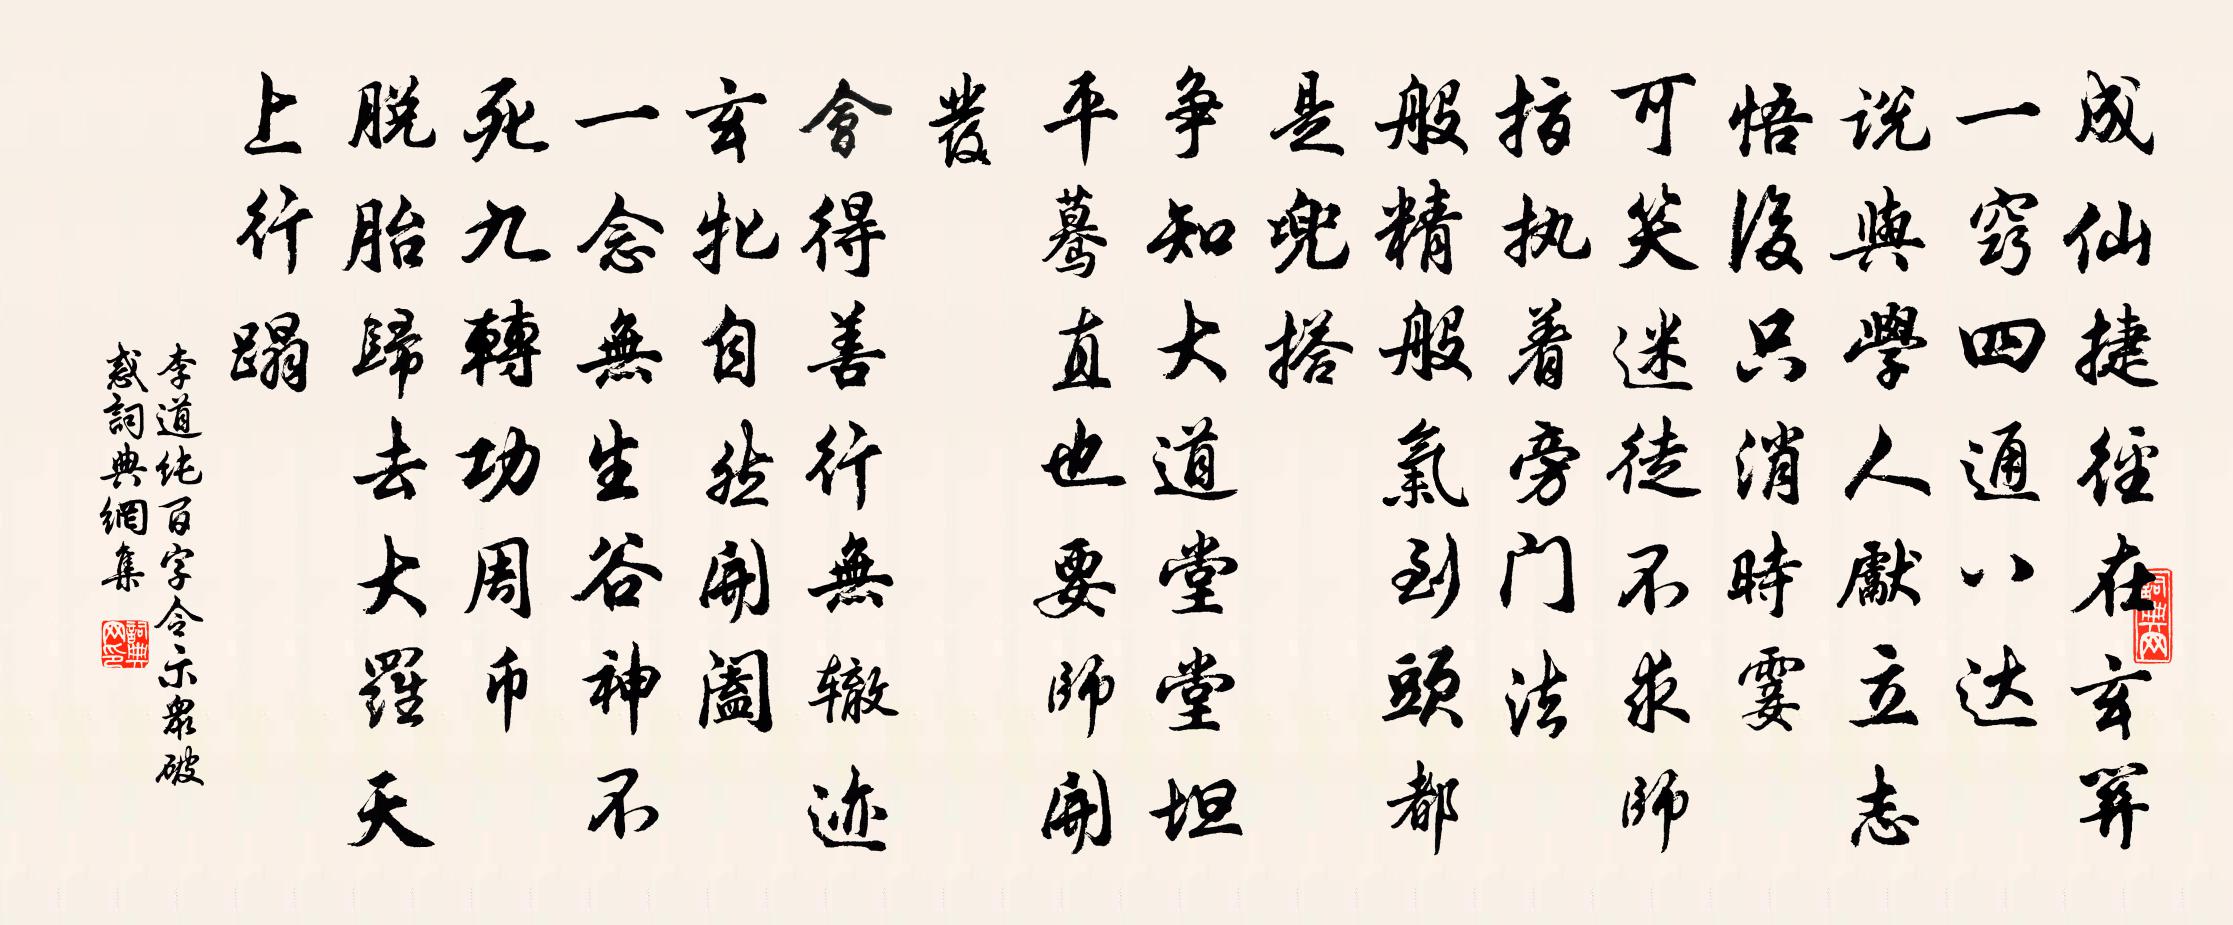 成仙捷径在玄関
一窍四通八达
説與學人獻立志
悟後只消時霎
可笑迷徒不求師
指执着旁门法
般精般氣到頭都
是兜搭
争知大道堂堂坦
平蓦直也要師開
發
會得善行無辙迹
玄牝自然開阖
一念無生谷神不
死九轉功周帀
脱胎歸去大羅天
上行蹋
李道纯百字令示眾破
惑詞典網集
詞典网
詞典网印